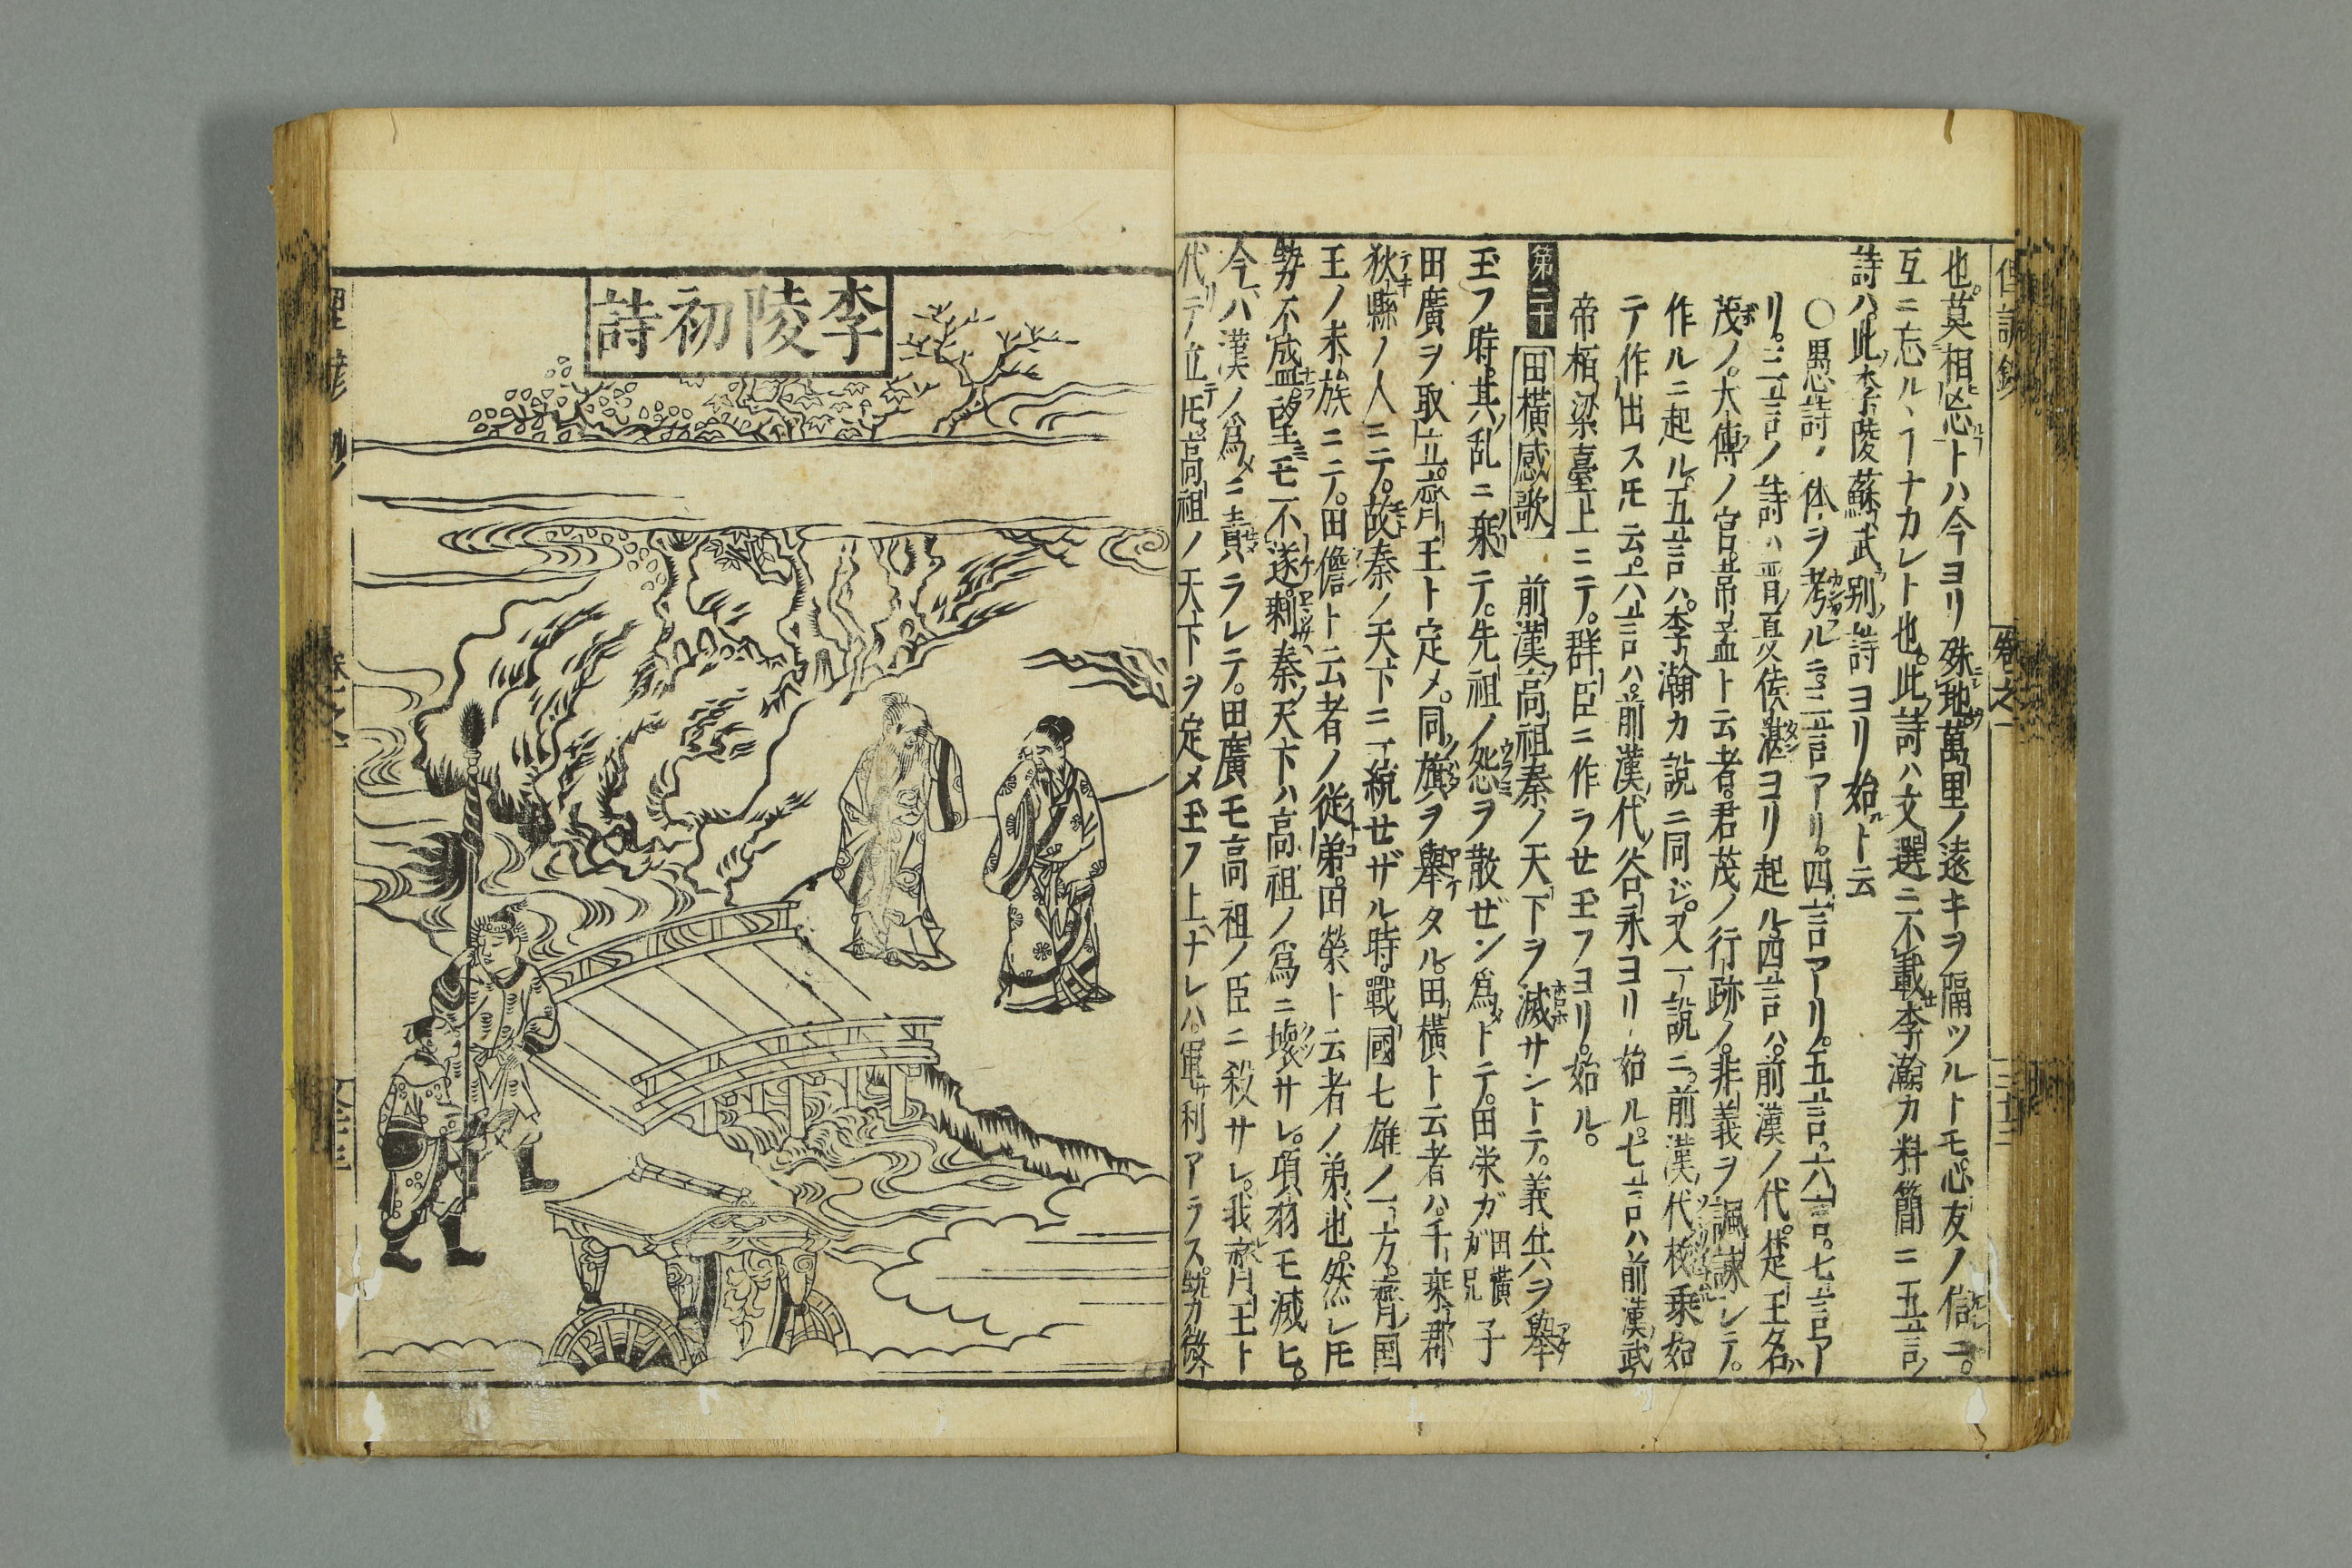 也。莫相忘トハ今ヨリ殊地。萬里ノ遠キヲ隔ツルトモ。心友ノ信ニ。
互ニ忘ルヽヿナカレト也。此詩ハ文選ニ不載李瀚カ料簡ニ五言ノ
詩ハ此李陵蘇武別詩ヨリ始ト云
〇愚詩ノ体ヲ考ルニ。三言アリ。四言アリ。五言。六言。七言ア
リ。三言ノ詩ハ晋夏侯湛ヨリ起ル。四言ハ。前漢ノ代。楚王名ハ
茂ノ。大傅ノ官。韋孟ト云者。君茂ノ行跡ノ。非義ヲ諷諫レテ。
作ルニ起ル。五言ハ。李瀚カ説ニ同ジ。又一説ニ。前漢ノ代枚乗始
テ作出スモ云。六言ハ。前漢ノ代谷永ヨリ始ル。七言ハ前漢武
帝栢梁臺上ニテ。群臣ニ作ラセ玉フヨリ。始ル。
第二十 田横感歌 前漢高祖秦ノ天下ヲ滅サントテ。義兵ヲ擧
玉フ時。其乱ニ乗テ。先祖ノ怨ヲ散ゼン爲トテ。田栄ガ 田横ガ兄 子
田廣ヲ取立。齊王ト定メ。同旗ヲ擧タル。田横ト云者ハ。千乗郡
狄縣ノ人ニテ。故秦ノ天下ニ一統セザル時。戰國七雄ノ一方。齊国
王ノ末族ニテ。田儋ト云者ノ従弟。田榮ト云者ノ弟也。然レモ
勢力不盛。望モ不遂。剰秦ノ天下ハ高祖ノ爲ニ壞サレ。項羽モ滅ヒ。
今ハ漢ノ爲ニ責ラレテ。田廣モ高祖ノ臣ニ殺サレ。我齊王ト
代テ立モ高祖ノ天下ヲ定メ玉フ上ナレハ。軍利アラス。勢力微
卷之一
李陵初詩